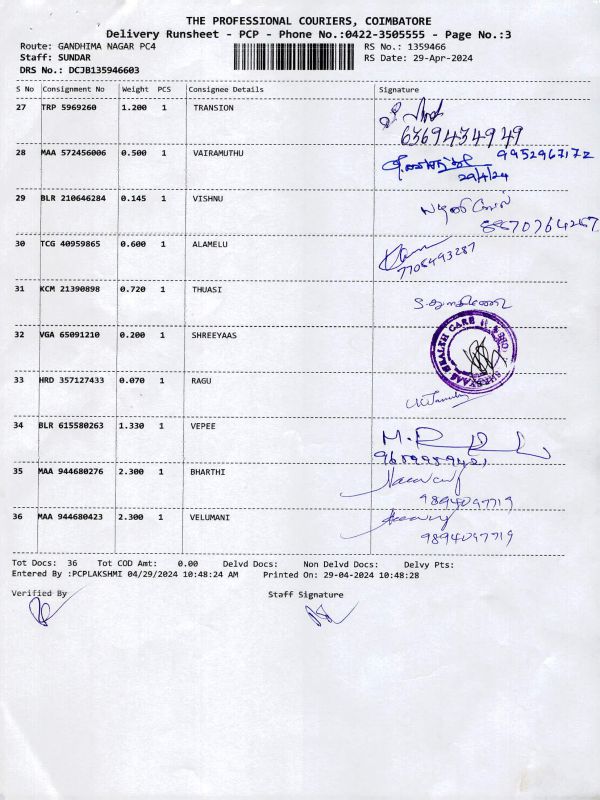 THE PROFESSIONAL COURIERS, COIMBATORE
Delivery Runsheet - PCP - Phone No.:0422-3505555 - Page No.:3
Route: GANDHIMA NAGAR PC4 RS No.: 1359466
Staff: SUNDAR RS Date: 29-Apr-2024
DRS No.: DCJB135946603
S No Consignment No Weight PCS Consignee Details Signature
27 TRP 5969260 1.200 1 TRANSION
6369434949
28 MAA 572456006 0.500 1 VAIRAMUTHU 9952967172
29/4/24
29 BLR 210646284 0.145 1 VISHNU
8870764267
30 TCG 40959865 0.600 1 ALAMELU
7708493287
31 KCM 21390898 0.720 1 THUASI
32 VGA 65091210 0.200 1 SHREEYAAS
SHREYAAS HEALTH CARE
33 HRD 357127433 0.070 1 RAGU
34 BLR 615580263 1.330 1 VEPEE
9659959421
35 MAA 944680276 2.300 1 BHARTHI
9894097719
36 MAA 944680423 2.300 1 VELUMANI
9894097719
Tot Docs: 36 Tot COD Amt: 0.00 Delvd Docs: Non Delvd Docs: Delvy Pts:
Entered By :PCPLAKSHMI 04/29/2024 10:48:24 AM Printed On: 29-04-2024 10:48:28
Verified By Staff Signature